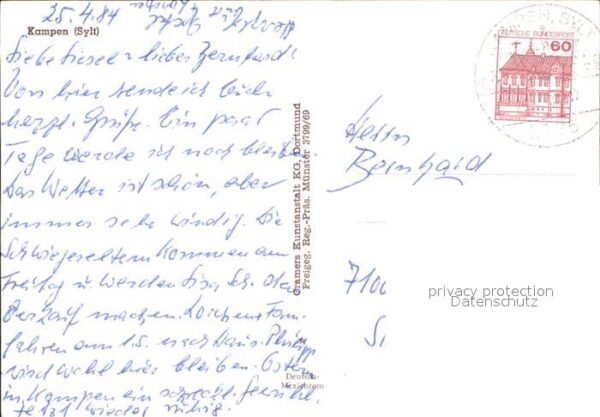 25.4.84
Kampen (Sylt)
Liebe Liesel u. lieber Bernhard!
Von hier sende ich Euch
herzl. Grüße. Ein paar
Tage werde ich noch bleiben
Das Wetter ist schön, aber
immer sehr windig. Die
Schwiegereltern kommen am
Freitag u. werden
machen.
fahren am 1.5. nach Haus. Philipp
wird wohl hier bleiben. Ostern
in Kampen ein schreckl. Gewühl.
Jetzt wieder ruhig.
Cramers Kunstanstalt KG, Dortmund
Freigeg. Reg.-Präs. Münster 3799/69
Deutsch-
Mexichrom
DEUTSCHE BUNDESPOST
60
Herrn
Bernhard
7100
privacy protection
Datenschutz